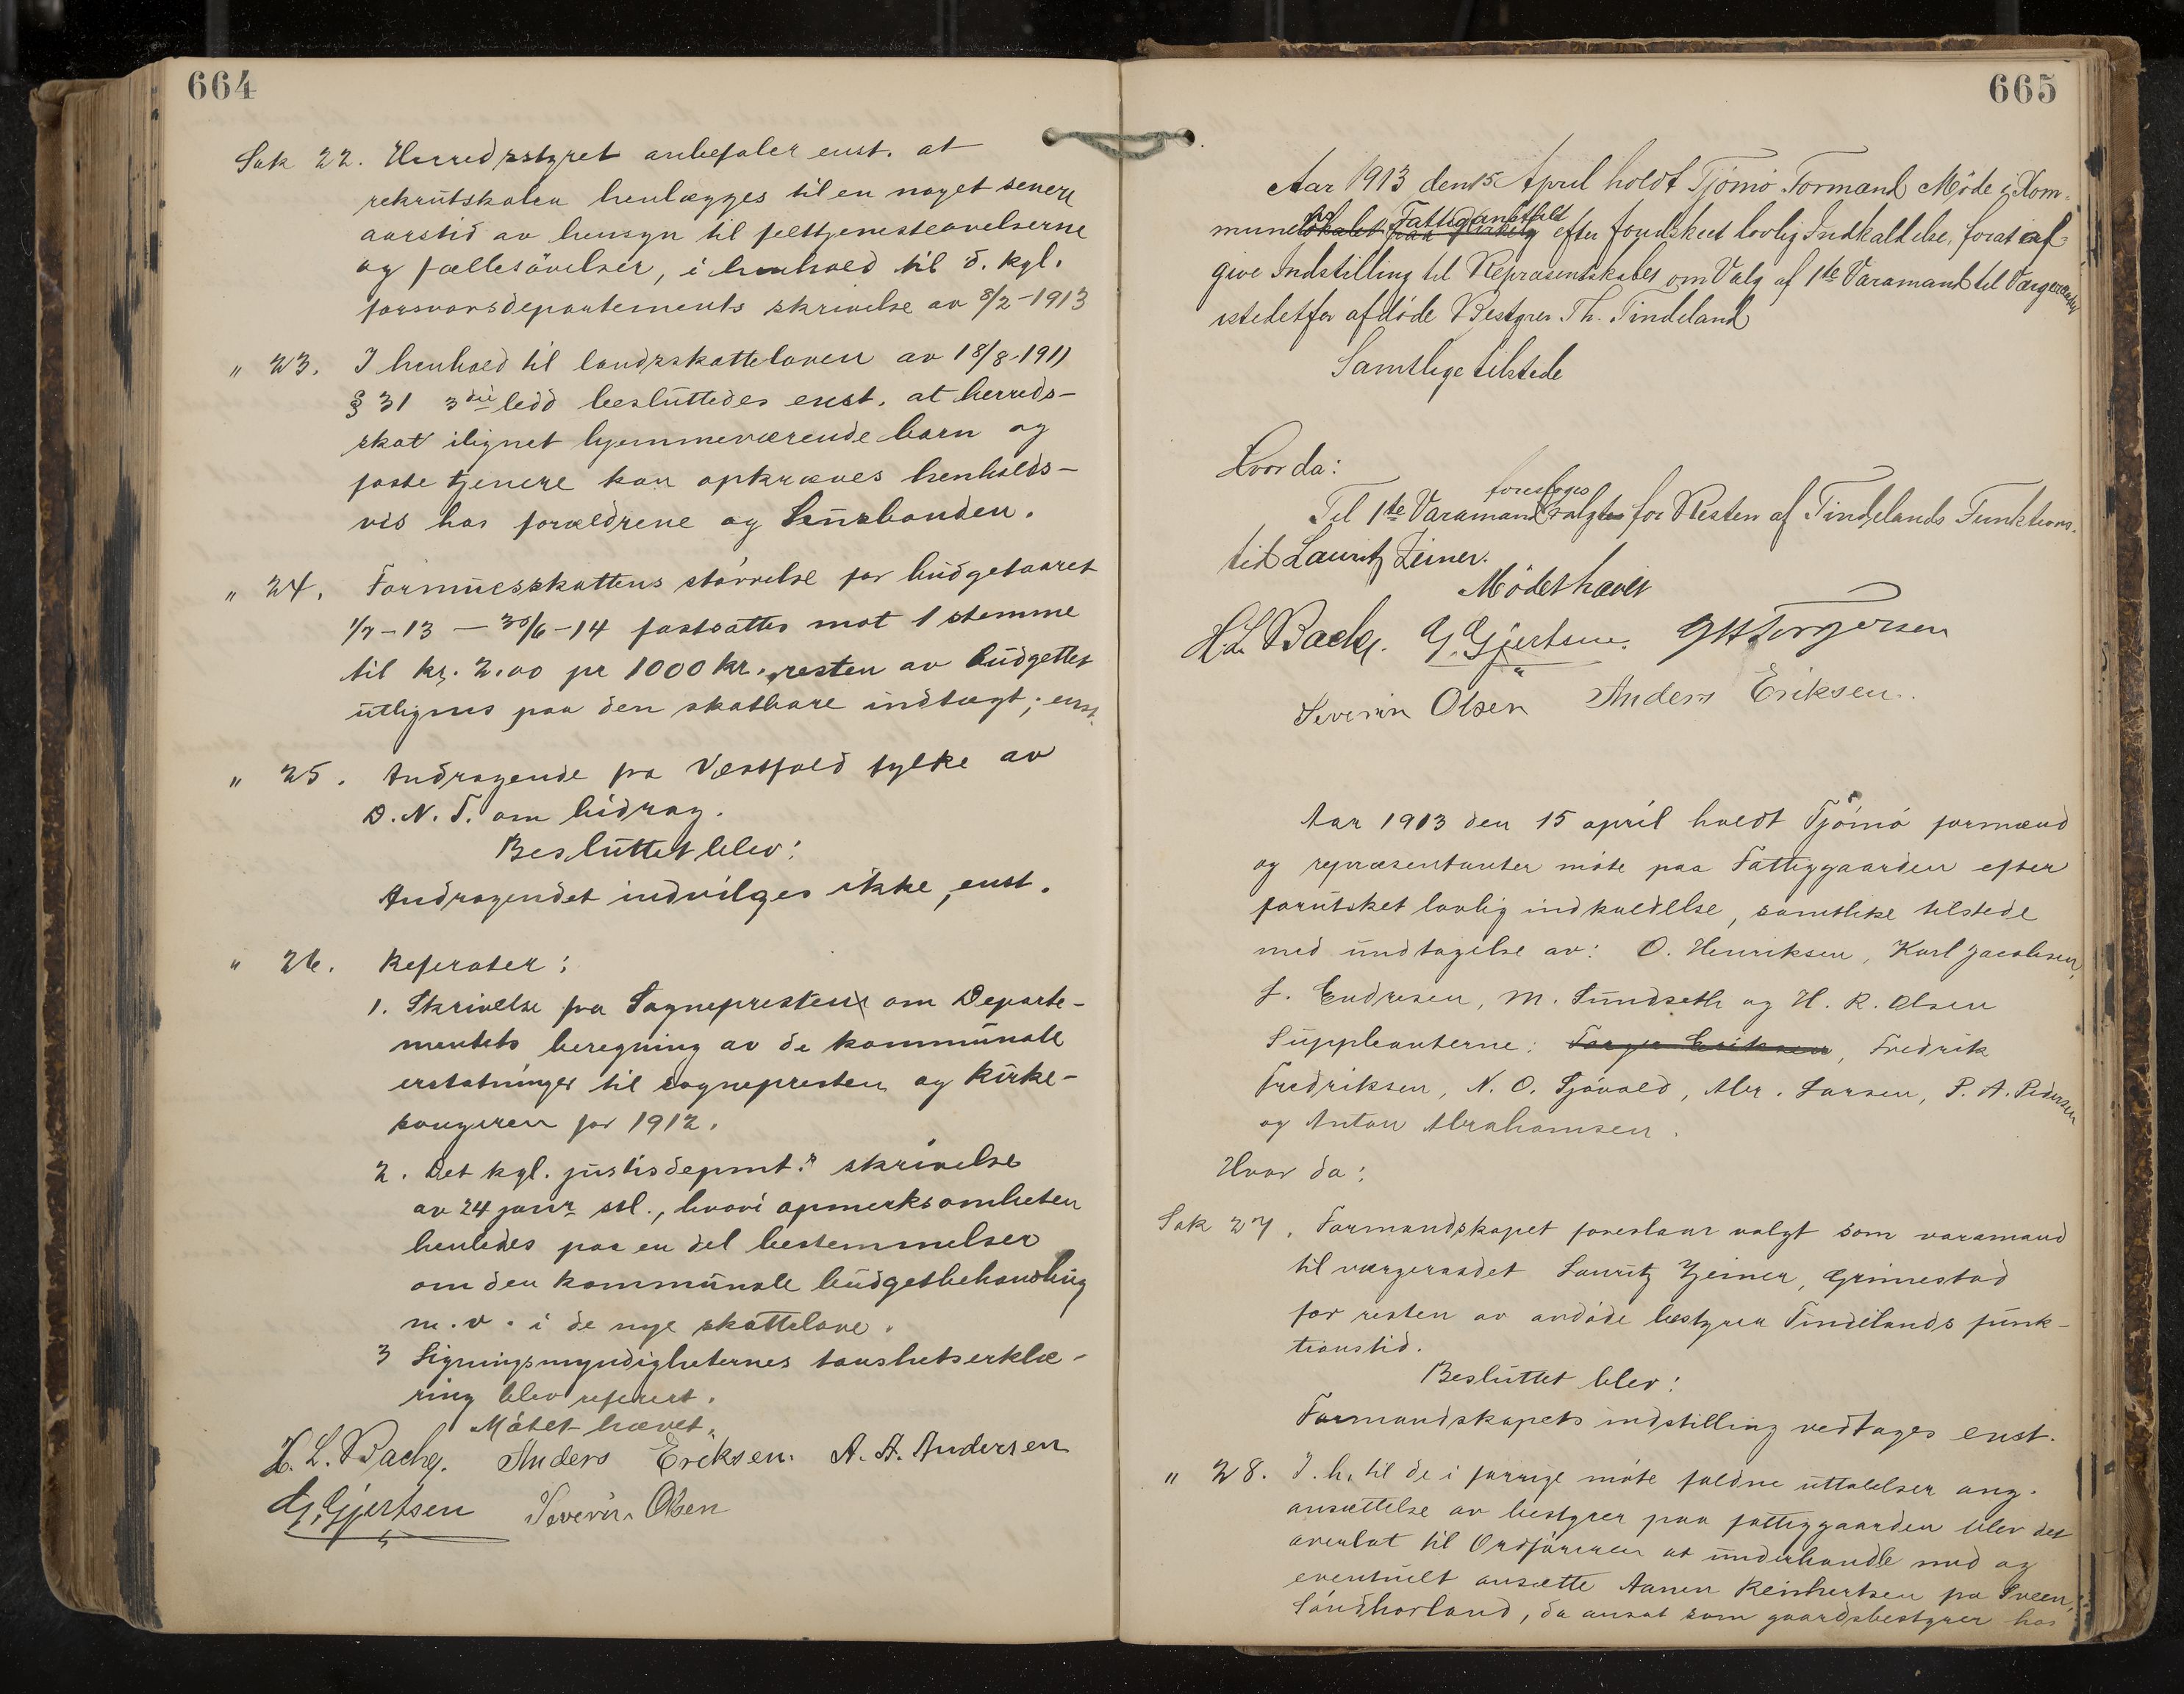 664
Sak 22. Herredsstyret anbefaler enst. at
rekrutskolen henlægges til en noget senere
aarstid av hensyn til felttjenesteøvelserne
og fællesövelser, i henhold til d. kgl.
forsvarsdepartements skrivelse av 8/2-1913
" 23. I henhold til landsskatteloven av 18/8-1911
§ 31 3die ledd besluttedes enst. at herreds-
skat ilignet hjemmeværende barn og
faste tjenere kan opkræves henholds-
vis hos forældrene og husbonden.
" 24. Formuesskattens størrelse for budgetaaret
1/7-13 — 30/6-14 fastsattes mot 1 stemme
til kr. 2.00 pr 1000 kr., resten av budgettet
utlignes paa den skatbare indtægt; enst.
" 25. Andragende fra Vestfold fylke av
D.N.T. om bidrag.
Besluttet blev:
Andragendet indvilges ikke, enst.
" 26. Referater:
1. Skrivelse fra Sognepresten om Departe-
mentets beregning av de kommunale
erstatninger til sognepresten og kirke-
sangeren for 1912.
2. Det kgl. justisdepmt.s skrivelse
av 24 janr. stl., hvori opmerksomheten
henledes paa en del bestemmelser
om den kommunale budgetbehandling
m.v. i de nye skattelove.
3 Ligningsmyndigheternes taushetserklæ-
ring blev referert.
Mötet hævet.
H. L. Bache. Anders Eriksen. A. A. Andersen
G. Gjertsen Severin Olsen
665
Aar 1913 den 15 April holdt Tjömö Formænd Möde i Kom-
munelokalet paa Fattiganstalt efter foudskeet lovlig Indkaldelse, forat af-
give Indstilling til Repræsentskabet om Valg af 1ste Varamand til Vergeraadet
istedetfor afdöde Bestyrer Th. Tindeland
Samtlige tilstede
Hvor da:
foreslages
Til 1ste Varamand valgtes for Resten af Tindelands Funktions-
tid Lauritz Zeiner.
Mödet hævet
H.L. Bache. G. Gjertsen. G H Torgersen
Severin Olsen Anders Eriksen.
Aar 1913 den 15 april holdt Tjömö formænd
og repræsentanter möte paa Fattiggaarden efter
forutsket lovlig indkaldelse, samtlike tilstede
med undtagelse av: O. Henriksen, Karl Jacobsen,
L. Endresen, M. Sundseth og H. R. Olsen
Suppleanterne: Torger Eriksen, Fredrik
Fredriksen, N. O. Sjövold, Abr. Larsen, P. A. Pedersen
og Anton Abrahamsen.
Hvor da:
Sak 27. Formandskapet foreslaar valgt som varamand
til vergeraadet Lauritz Zeiner, Grimestad
for resten av avdöde bestyrer Tindelands funk-
tionstid.
Besluttet blev:
Formandskapets indstilling vedtages enst.
" 28. I. h. til de i forrige möte faldne uttalelser ang.
ansættelse av bestyrer paa fattiggaarden blev det
overlat til Ordföreren at underhandle med og
eventuelt ansætte Aanen Reinhertsen fra Sveen,
Söndhorland, da ansat som gaardsbestyrer hos